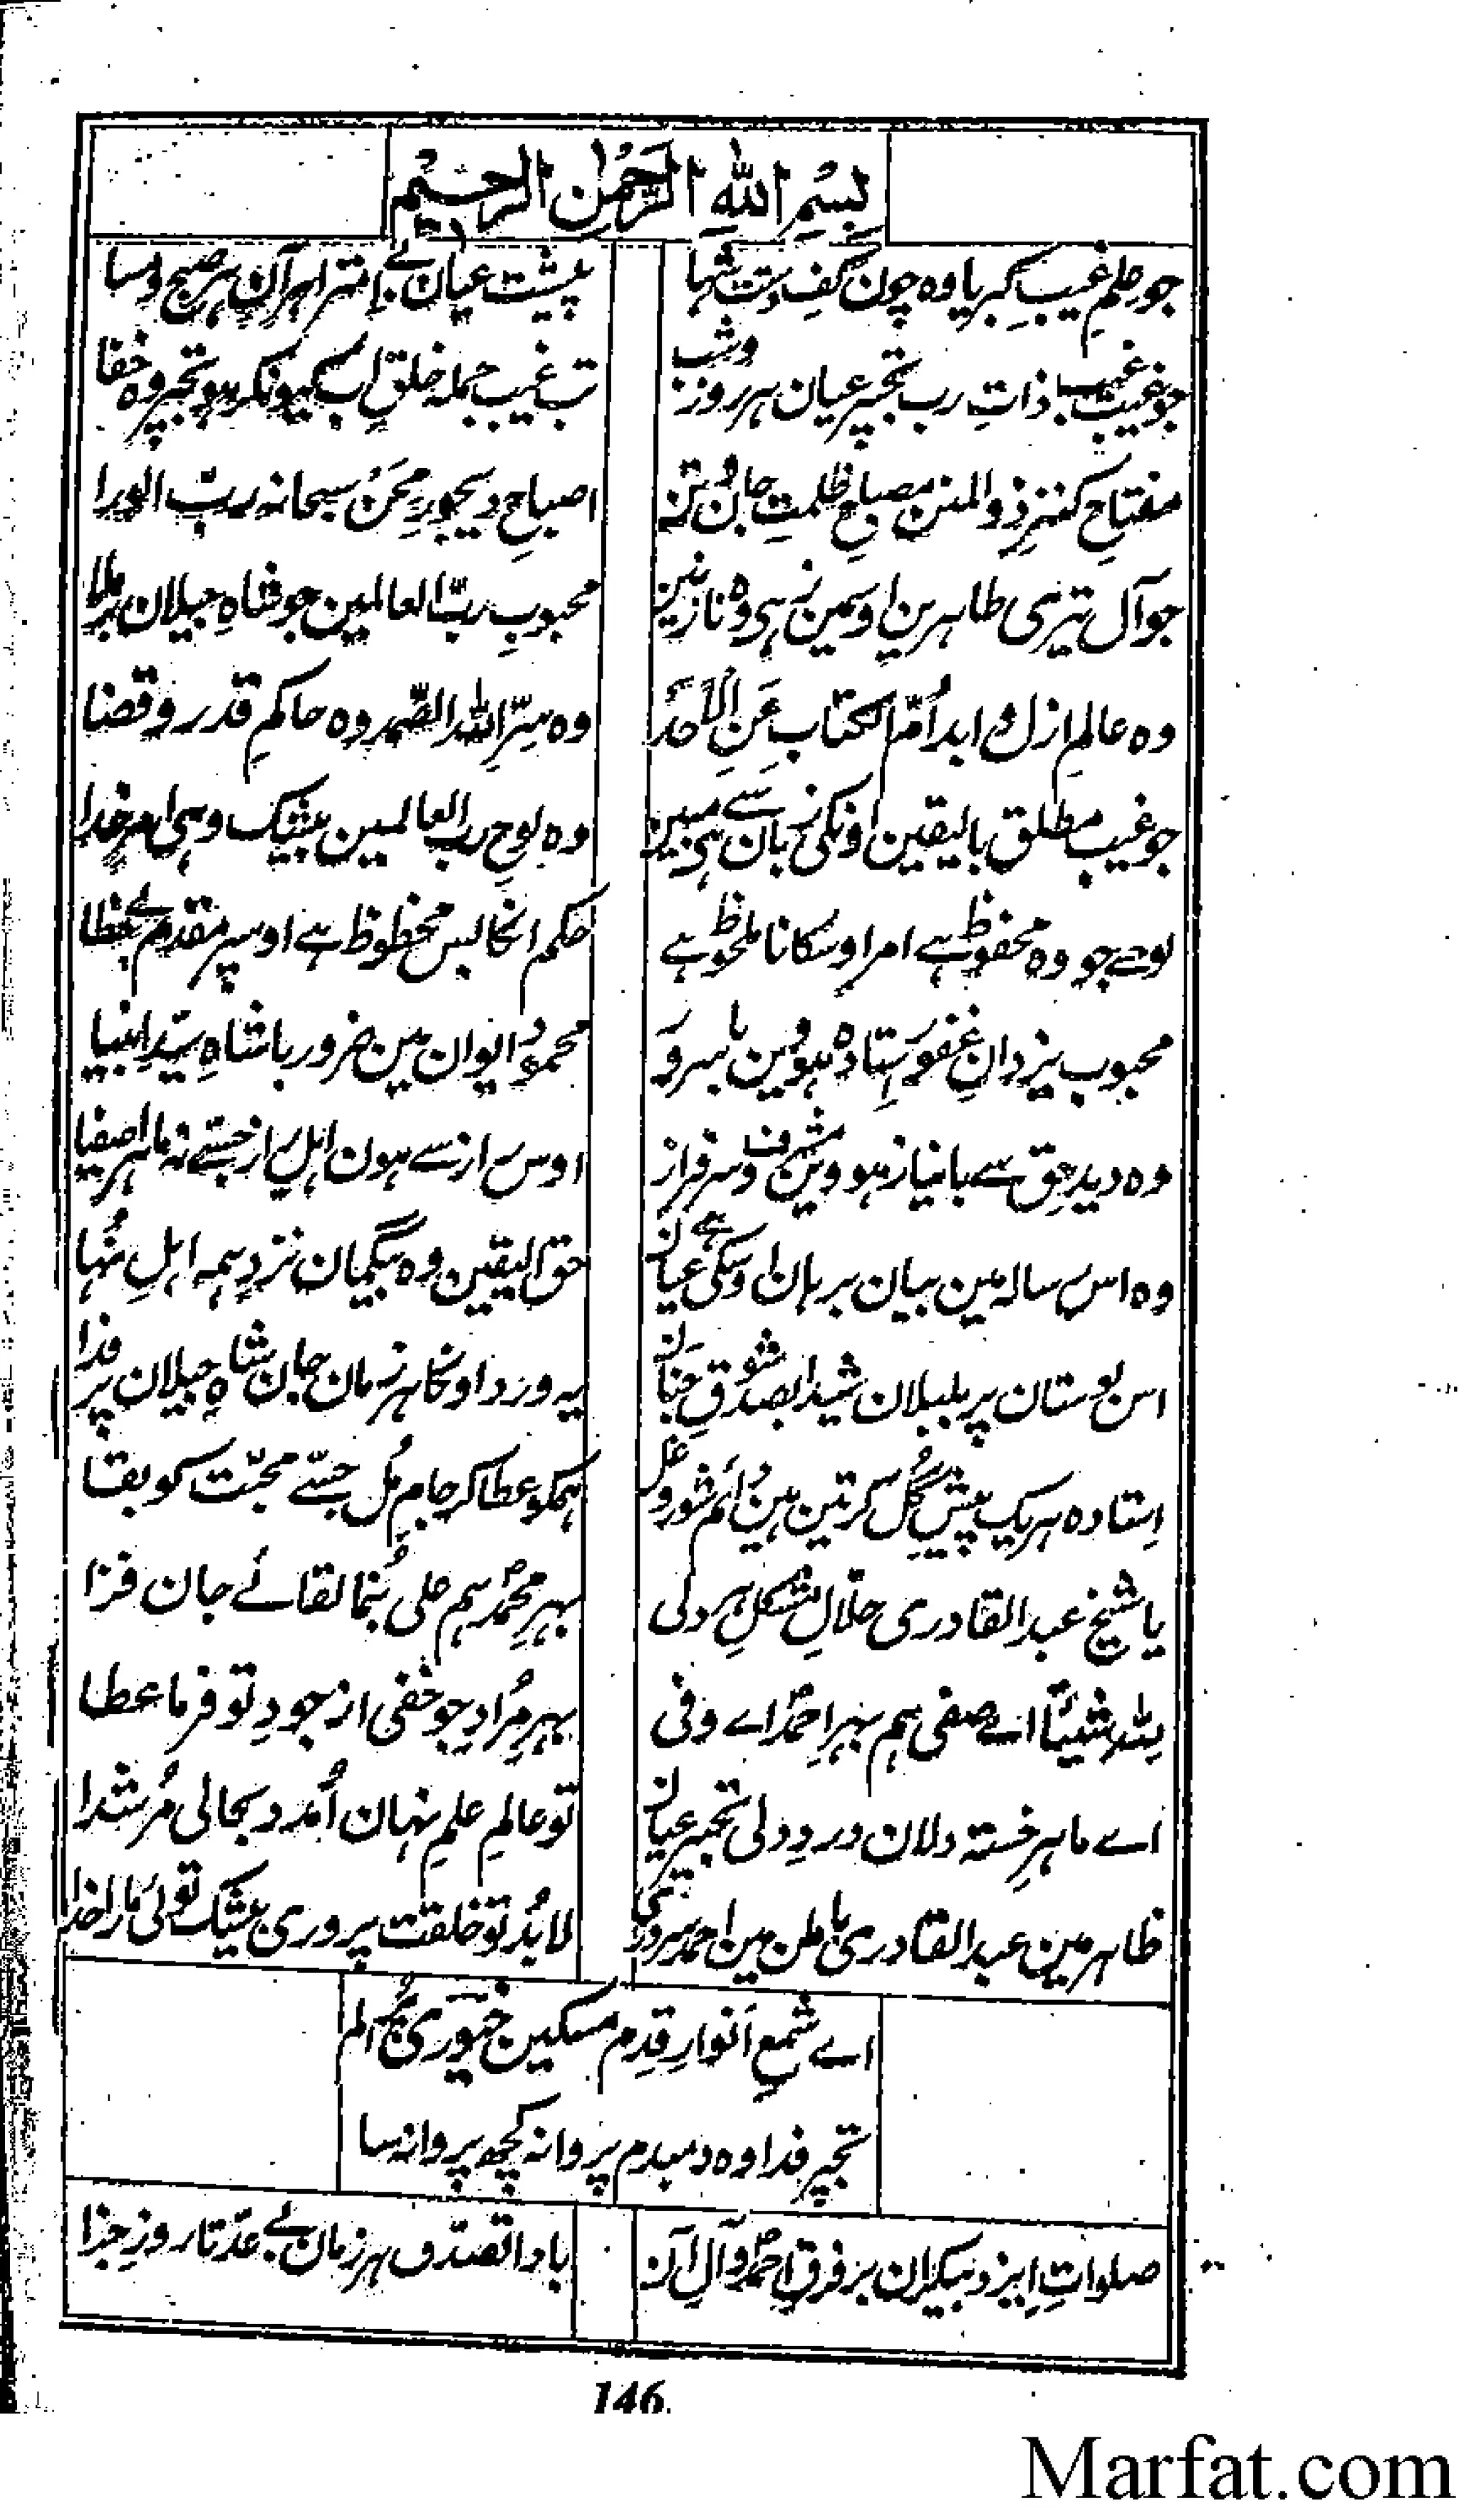 بِسْمِ اللهِ الرَّحْمٰنِ الرحیم
جو علمِ غیبِ کبریا وہ چون کفِ دست شہا پیشت عیان بے امترا ہر آن ہر صبح و مسا
جو غیبِ ذاتِ رب تجھپر عیان ہر روز و شب تب غیب جملہ خلق اب کیونکر ہو تجھپر وہ خفا
مفتاحِ کنزِ ذوالمنن مصباحِ ظلمتِ جان و تن اصباحِ دیجورِ محن سبحانہ رب الورا
جو آل تیری طاہرین اوسمین ہی وہ نازنین محبوبِ ربّ العالمین جو شاہِ جیلان برملا
وہ عالمِ ازل و ابد اُمّ الکتاب عَنِ الْاَحَد وہ سِرِّ اللہ الصّمد وہ حاکمِ قدر و قضا
جو غیب مطلق بالیقین اونکی زبان سے ہی مبین وہ لوحِ رب العالمین بیشک وہی امرِ خدا
لوح جو وہ محفوظ ہے امر اوسکا نا ملحوظ ہے حکم انکا بس محظوظ ہے اوسپر مقدم بے خطا
محبوب یزدانِ غفور اِستادہ ہووین با سرور محمود ایوان مین ضرور با شاہِ سیّد انبیا
وہ دید حق سے با نیاز ہووین مشرف و سرفراز اوس راز سے ہون اہل راز جتنے زماہر اصفیا
وہ اس رسالہ مین بیان برہان اوسکی ہے عیان حق الیقین وہ بیگمان نزدِ ہمہ اہلِ نُہا
اس بوستان پر بلبلان شیدا بصد شوقِ جنان یہ ورد اونکا ہر زمان جان شاہِ جیلان پر فدا
اِستادہ ہریک پیشِ گُل کرتین ہین دُائم شور و غل ہمکو عطا کر جامِ مُل جسّے محبّت کو بقا
یا شیخ عبدالقادری حلّالِ مشکلِ ہر دلی بہرِ محمدؐ ہم علی بُنما لقائے جان فزا
للہ شیئاً اے صفی ہم بہرِ احمدؐ اے وفی بہرِ مُرادِ جو خفی از جودِ تو فرما عطا
اے ماہرِ خستہ دلان دردِ دلی تجھپر عیان تو عالمِ علمِ نہان اُمدد بحالی مُرشدا
ظاہر مین عبدالقادری باطن مین احمد سروری لا بُد تو خلقت پروری بیشک توئی مارا خدا
اے شمعِ اَنوارِ قِدم مسکین خیّوری اَلم
تجھپر فدا وہ دمبدم پروانہ کچھ پروانہ سا
صلواتِ ایزد بیکران بر فرقِ احمدؐ و آلِ آن بادا تصدّق ہر زمان بے عدّ تا روزِ جزا
146
Marfat.com